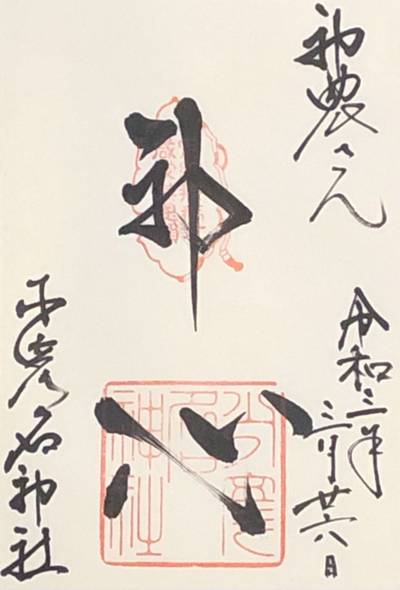 神農さん
令和三年
三月廿六日
神心
少彦名神社
少彦名神社